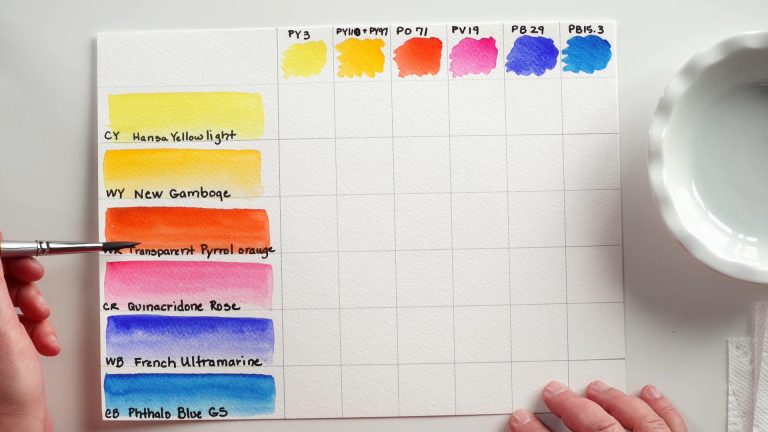 PY3 PY110+PY97 PO71 PV19 PB29 PB15.3
CY Hansa Yellow light
WY New Gamboge
WR Transparent Pyrrol orange
CR Quinacridone Rose
WB French Ultramarine
CB Phthalo Blue GS